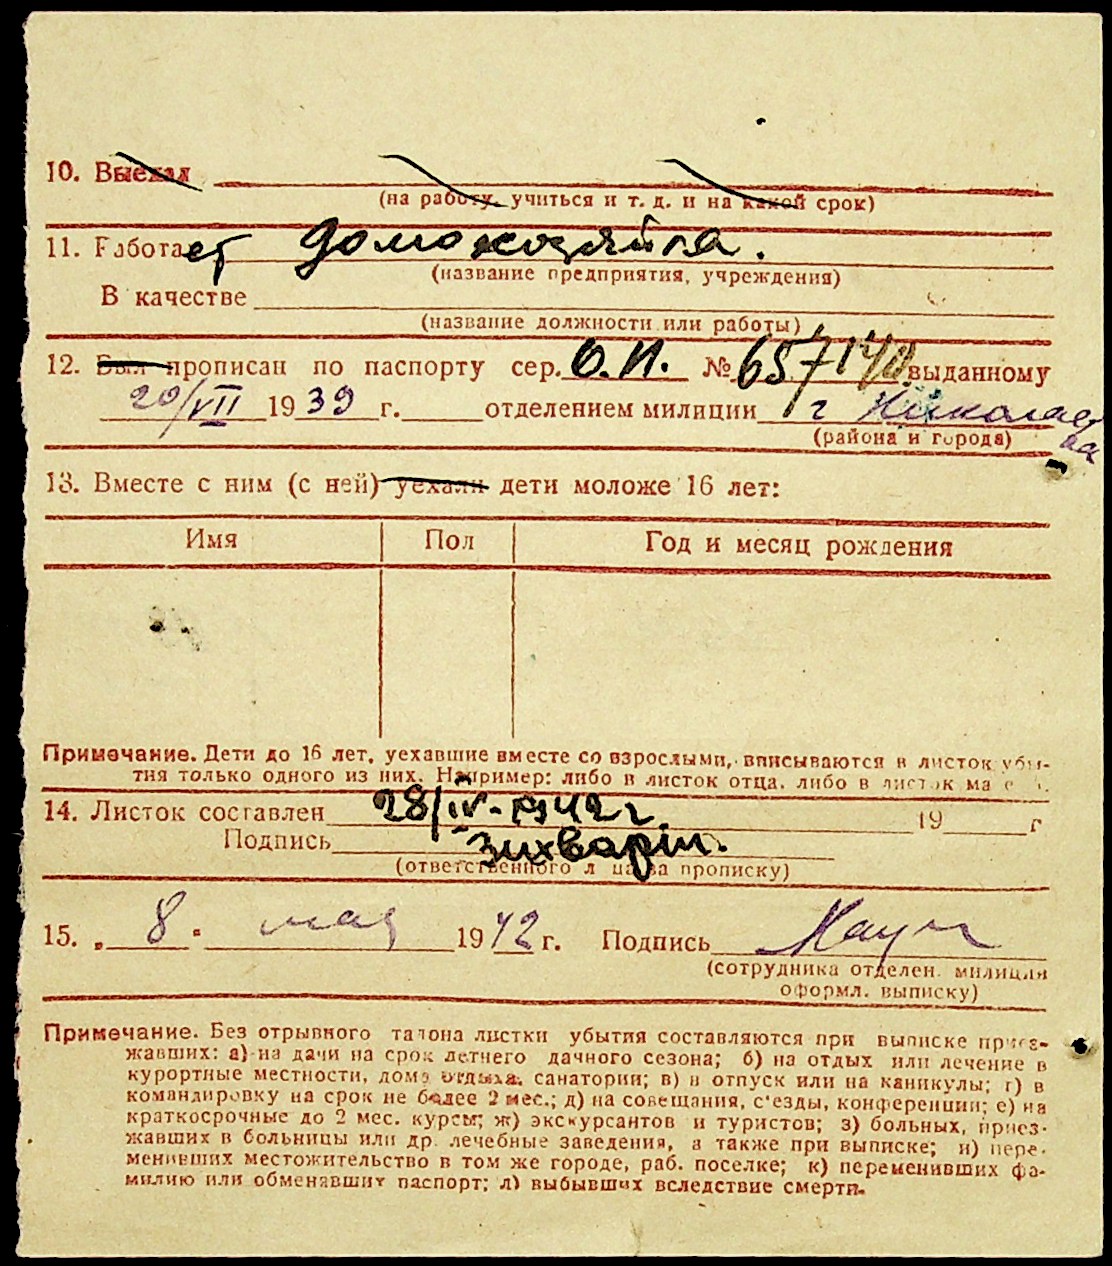 10. Выехал
(на работу, учиться и т. д. и на какой срок)
11. Работает домохозяйка.
(название предприятия, учреждения)
В качестве
(название должности или работы)
12. Был прописан по паспорту сер. О.И. № 657140 выданному
20/VII 1939 г. отделением милиции г Николаева
(района и города)
13. Вместе с ним (с ней) уехали дети моложе 16 лет:
Имя Пол Год и месяц рождения
Примечание. Дети до 16 лет, уехавшие вместе со взрослыми, вписываются в листок убы-
тия только одного из них. Например: либо в листок отца, либо в листок ма
14. Листок составлен 28/IV-1942 г. 19 г
Подпись
(ответственного л ца за прописку)
15. „ 8 " мая 1942 г. Подпись
(сотрудника отделен. милиции
оформл. выписку)
Примечание. Без отрывного талона листки убытия составляются при выписке приез-
жавших: а) на дачи на срок летнего дачного сезона; б) на отдых или лечение в
курортные местности, дома отдыха, санатории; в) в отпуск или на каникулы; г) в
командировку на срок не более 2 мес.; д) на совещания, с'езды, конференции; е) на
краткосрочные до 2 мес. курсы; ж) экскурсантов и туристов; з) больных, приез-
жавших в больницы или др. лечебные заведения, а также при выписке; и) пере-
менивших местожительство в том же городе, раб. поселке; к) переменивших фа-
милию или обменявших паспорт; л) выбывших вследствие смерти.